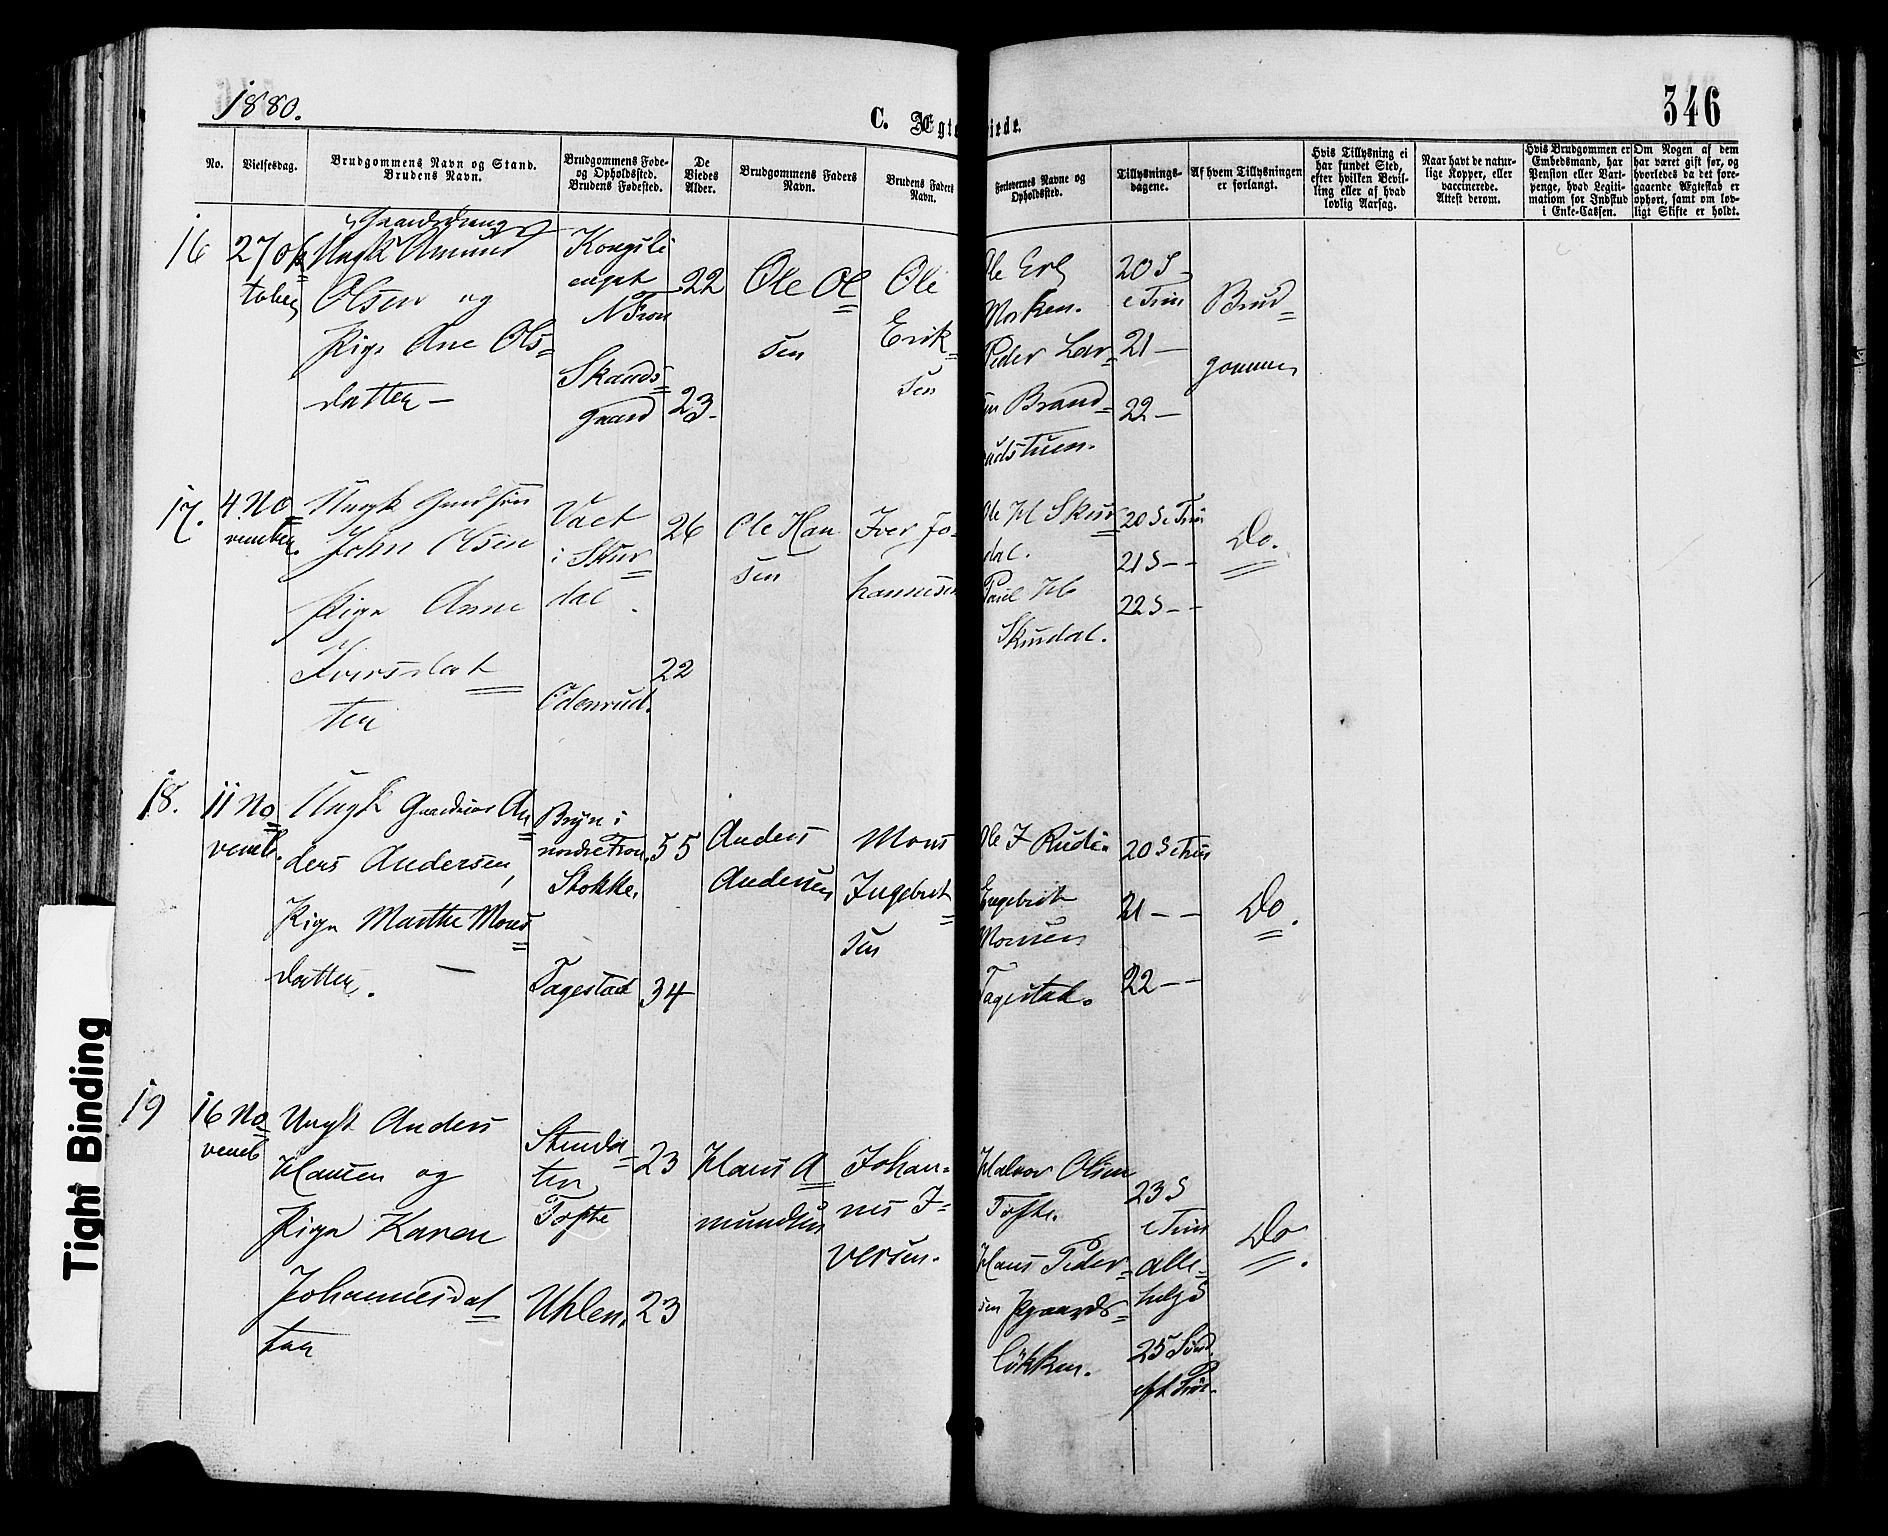 1880.
C. Ægteviede.
346
No.
Vielsesdag.
Brudgommens Navn og Stand.
Brudens Navn.
Brudgommens Føde-
og Opholdssted.
Brudens Fødested.
De
Viedes
Alder.
Brudgommens Faders
Navn.
Brudens Faders
Navn.
Forlovernes Navne og
Opholdssted.
Tillysnings-
dagene.
Af hvem Tillysningen
er forlangt.
Hvis Tillysning ei
har fundet Sted,
efter hvilken Bevil-
ling eller af hvad
lovlig Aarsag.
Naar havt de natur-
lige Kopper, eller
vaccinerede.
Attest derom.
Hvis Brudgommen er
Embedsmand, har
Pension eller Vart-
penge, hvad Legiti-
mation for Indskud
i Enke-Cassen.
Om Nogen af dem
har været gift før, og
hvorledes da det fore-
gaaende Ægteskab er
ophørt, samt om lov-
ligt Skifte er holdt.
16
27 Ok
tober
Ungk Amund
Olsen og
Pige Ane Ols=
datter —
Kongsli
N Fron
Skauds=
gaard
22
23.
Ole Ol=
sen
Ole
Erik=
sen
Ole Erl
Morken.
Peder Lar=
sen Brand=
rudstuen.
20 S
e Trin
21 —
22 —
Brud=
gommen
17.
4 No=
vember.
Ungk
John Olsen
Pige Anne
Iversdat=
ter
Vaet
i Skur=
dal
Odenrud.
26
22
Ole Han
sen
Iver Jo-
hannesen
Ole H Skur=
dal.
Paul H
Skurdal.
20 S e Trin
21 S - -
22 S - -
Do.
18.
11 No=
vemb.
Ungk Gaardmand An=
ders Andersen,
Pige Marthe Mons=
datter. —
Bryn i
nordre Fron
Stokke.
Tagestad
55
34
Anders
Andersen
Mons
Ingebrit=
sen
Ole J Rudi
Engebrit
Monsen
Tagestad.
20 S e Trin
21 - -
22 - -
Do.
19
16 No=
vemb
Ungk Anders
Hansen og
Pige Karen
Johannesdat=
ter
Tofte
Uhlen.
23
23
Hans A=
mundsen
Johan-
nes I-
versen.
Halvor Olsen
Tofte.
Hans Peder=
sen Pgaards=
løkken.
23 S
e Trin
Alle=
helgs
25 Sønd.
eft Trin.
Do.
Tight Binding